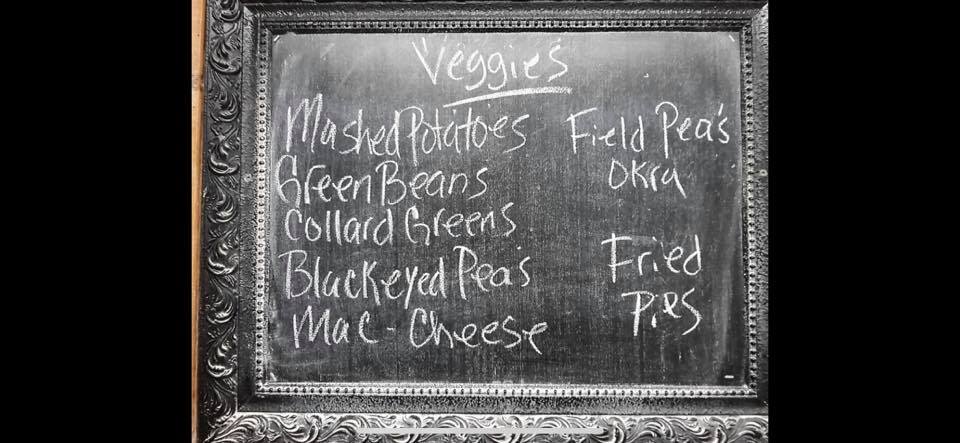 Veggie's
Mashed Potatoes
Green Beans
Collard Greens
Blackeyed Pea's
Mac - Cheese
Field Pea's
Okra
Fried
Pies